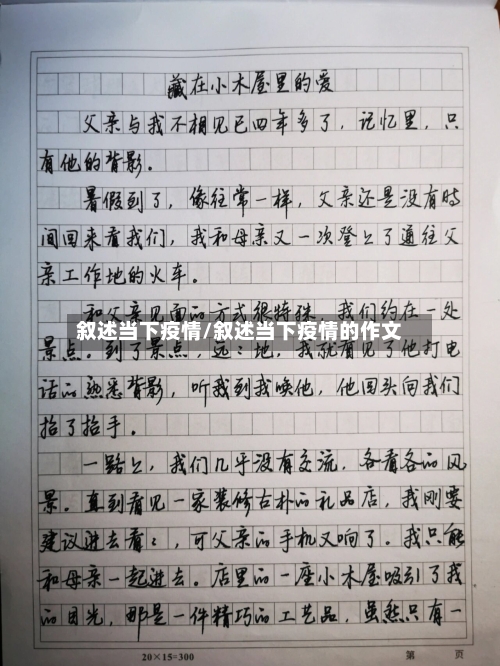 藏在小木屋里的爱
父亲与我不相见已四年多了，记忆里，只
有他的背影。
暑假到了，像往常一样，父亲还是没有时
间回来看我们，我和母亲又一次登上了通往父
亲工作地的火车。
和父亲见面的方式很特殊，我们约在一处
叙述当下疫情/叙述当下疫情的作文
景点。到了景点，远远地，我就看见了他打电
话的熟悉背影，听我到我唤他，他回头向我们
招了招手。
一路上，我们几乎没有交流，各看各的风
景。直到看见一家装修古朴的礼品店，我刚要
建议进去看看，可父亲的手机又响了。我只能
和母亲一起进去。店里的一座小木屋吸引了我
的目光，那是一件精巧的工艺品，虽然只有一
20×15=300
第 页